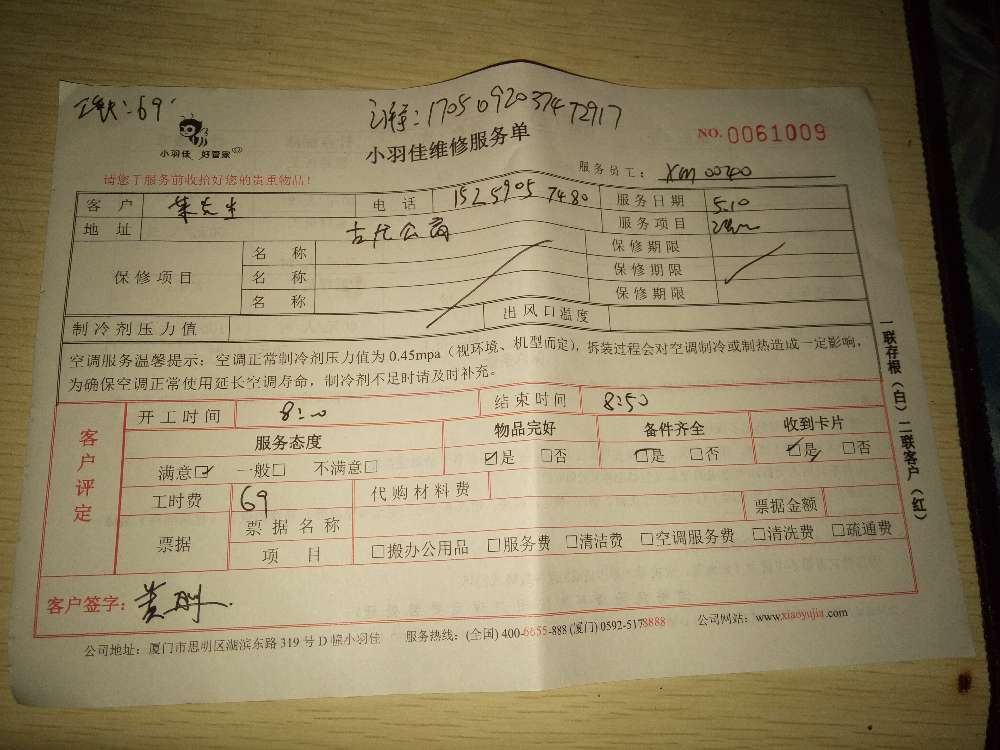 69
170509203747 2917
小羽佳 好管家
小羽佳维修服务单
NO. 0061009
请您于服务前收拾好您的贵重物品!
服务员工: XM00740
客户 朱先生 电话 152 5905 7480 服务日期 5.10
地址 古龙公寓 服务项目
保修项目 名称 保修期限
名称 保修期限
名称 保修期限
制冷剂压力值 出风口温度
空调服务温馨提示:空调正常制冷剂压力值为0.45mpa(视环境、机型而定),拆装过程会对空调制冷或制热造成一定影响,
为确保空调正常使用延长空调寿命,制冷剂不足时请及时补充。
客户评定
开工时间 8:00 结束时间 8:50
服务态度 物品完好 备件齐全 收到卡片
满意☑ 一般□ 不满意□ ☑是 □否 ☑是 □否 ☑是 □否
工时费 69 代购材料费
票据 票据名称 票据金额
项目 □搬办公用品 □服务费 □清洁费 □空调服务费 □清洗费 □疏通费
客户签字:
公司地址:厦门市思明区湖滨东路319号D幢小羽佳 服务热线:(全国)400-6655-888(厦门)0592-5178888 公司网站:www.xiaoyujia.com
一联存根(白)二联客户(红)